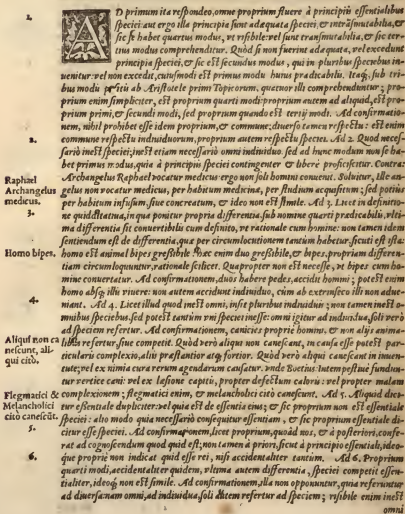 2.
AD primum ita respondeo, omne proprium fluere à principiis essentialibus
speciei: aut ergo illa principia sunt adæquata speciei, et intrāsmutabilia, et
sic se habet quartus modus, vt risibile: vel sunt transmutabilia, et sic ter-
tius modus comprehenditur. Quòd si non fuerint adæquata, vel excedunt
principia speciei, et sic est secundus modus, qui in pluribus speciebus in-
uenitur: vel non excedit, cuiusmodi est primus modus huius prædicabilis. Itaq; sub tri-
bus modis ab Aristotele primo Topicorum, quatuor illi comprehenduntur; pro-
prium enim simpliciter, est proprium quarti modi: proprium autem ad aliquid, est pro-
prium primi, et secundi modi, sed proprium quando est tertij modi. Ad confirmatio-
nem, nihil prohibet esse idem proprium, et commune; diuerso tamen respectu: est enim
3.
commune respectu indiuiduorum, proprium autem respectu speciei. Ad 2. Quod neces-
sariò inest speciei; inest etiam necessariò omni indiuiduo. sed ad hunc modum non se ha-
bet primus modus, quia à principiis speciei contingenter et liberè proficiscitur. Contra:
Raphael
Archangelus
medicus.
Archangelus Raphael vocatur medicus: ergo non soli homini conuenit. Soluitur, ille an-
gelus non vocatur medicus, per habitum medicinæ, per studium acquisitum; sed potius
per habitum infusum, siue concreatum, et ideo non est simile. Ad 3. Licet in definitio-
3.
ne quidditatiua, in qua ponitur propria differentia. sub nomine quarti prædicabili, vlti-
ma differentia sit conuertibilis cum definito, vt rationale cum homine: non tamen idem
sentiendum est de differentia, quæ per circumlocutionem tantùm habetur. sicuti est ista:
Homo bipes.
homo est animal bipes gresibile. hæc enim duo gresibile, et bipes, propriam differen-
tiam circumloquuntur, rationale scilicet. Quapropter non est necesse, vt bipes cum ho-
mine conuertatur. Ad confirmationem, duos habere pedes, accidit homini; potest enim
homo absq; illis viuere: non autem accidunt indiuiduo, cùm ab extrinseco illi non adue-
4.
niant. Ad 4. Licet illud quod inest omni, insit pluribus indiuiduis; non tamen inest o-
mnibus speciebus. sed potest tantùm vni speciei inesse: omni igitur ad indiuidua, soli verò
ad speciem refertur. Ad confirmationem, canicies proprie homini, et non aliis anima-
Aliqui non ca
nescunt, ali-
qui citò.
libus refertur, siue competit. Quòd verò aliqui non canescant, in causa esse potest par-
ticularis complexio, aliis præstantior atq; fortior. Quòd verò aliqui canescant in iuuen-
tute; vel ex nimia cura rerum agendarum causatur. vnde Boetius Intempestiuè fundun-
tur vertice cani: vel ex læsione capitis, propter defectum caloris: vel propter malam
Flegmatici &
Melancholici
citò canescūt.
complexionem; flegmatici enim, et melancholici citò canescunt. Ad 5. Aliquid dici-
tur essentiale dupliciter: vel quia est de essentia eius; et sic proprium non est essentiale
speciei: alio modo quia necessariò consequitur essentiam, et sic proprium essentiale di-
5.
citur esse speciei. Ad confirmationem, licet proprium, quoad nos, et à posteriori, confe-
rat ad cognoscendum quod quid est; non tamen à priori, sicut à principio essentiali, ideo-
6.
que proprie non indicat quid esse rei, nisi accidentaliter tantùm. Ad 6. Proprium
quarti modi, accidentaliter quidem, vltima autem differentia, speciei competit essen-
tialiter, ideoq; non est simile. Ad confirmationem, illa non opponuntur, quia referuntur
ad diuersa: nam omni, ad indiuidua, soli autem refertur ad speciem; risibile enim inest
omni